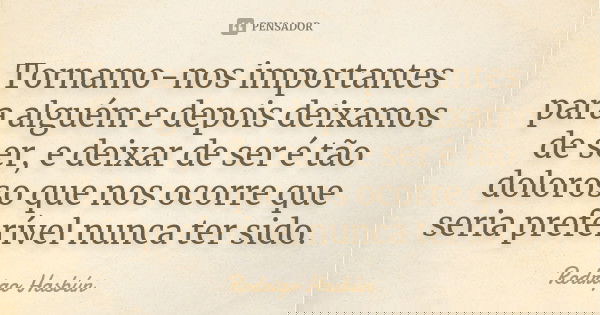 PENSADOR
Tornamo-nos importantes
para alguém e depois deixamos
de ser, e deixar de ser é tão
doloroso que nos ocorre que
seria preferível nunca ter sido.
Rodrigo Hasbún